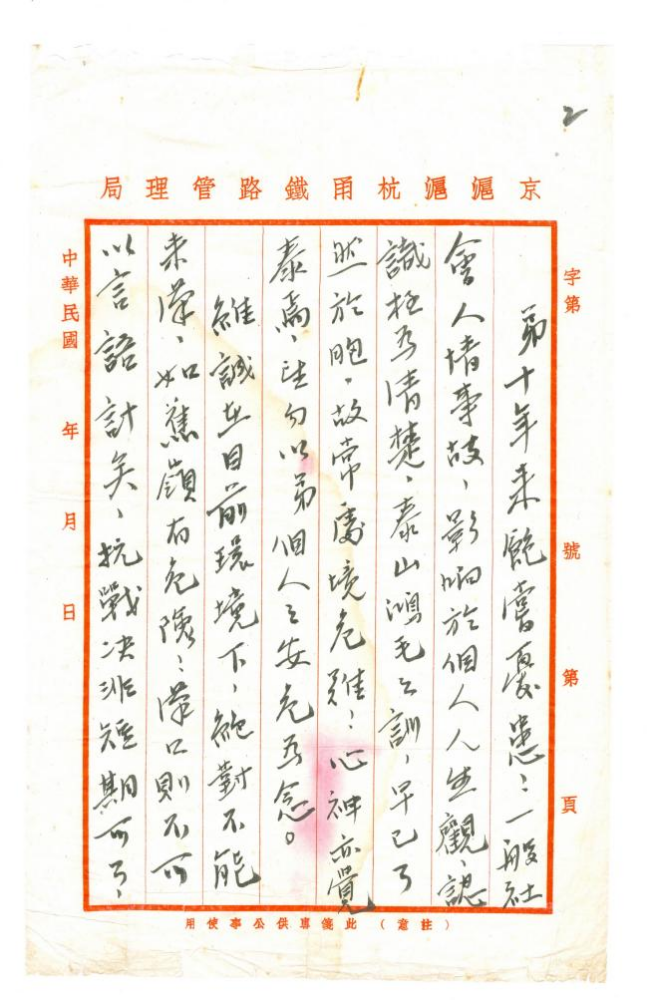 2
京滬滬杭甬鐵路管理局
字第 號第 頁
弟十年來飽嘗憂患：一般社
會人情事故，影响於個人人生觀、認
識極爲清楚，泰山鴻毛之訓，早已了
然於胞，故常處境危難：心神亦覺
泰焉，望勿以弟個人之安危爲念。
維誠在目前環境下，絕對不能
來漢，如蕉嶺有危險：漢口則不可
以言語計矣，抗戰決非短期可了，
中華民國 年 月 日
（注意）此箋專供公事使用